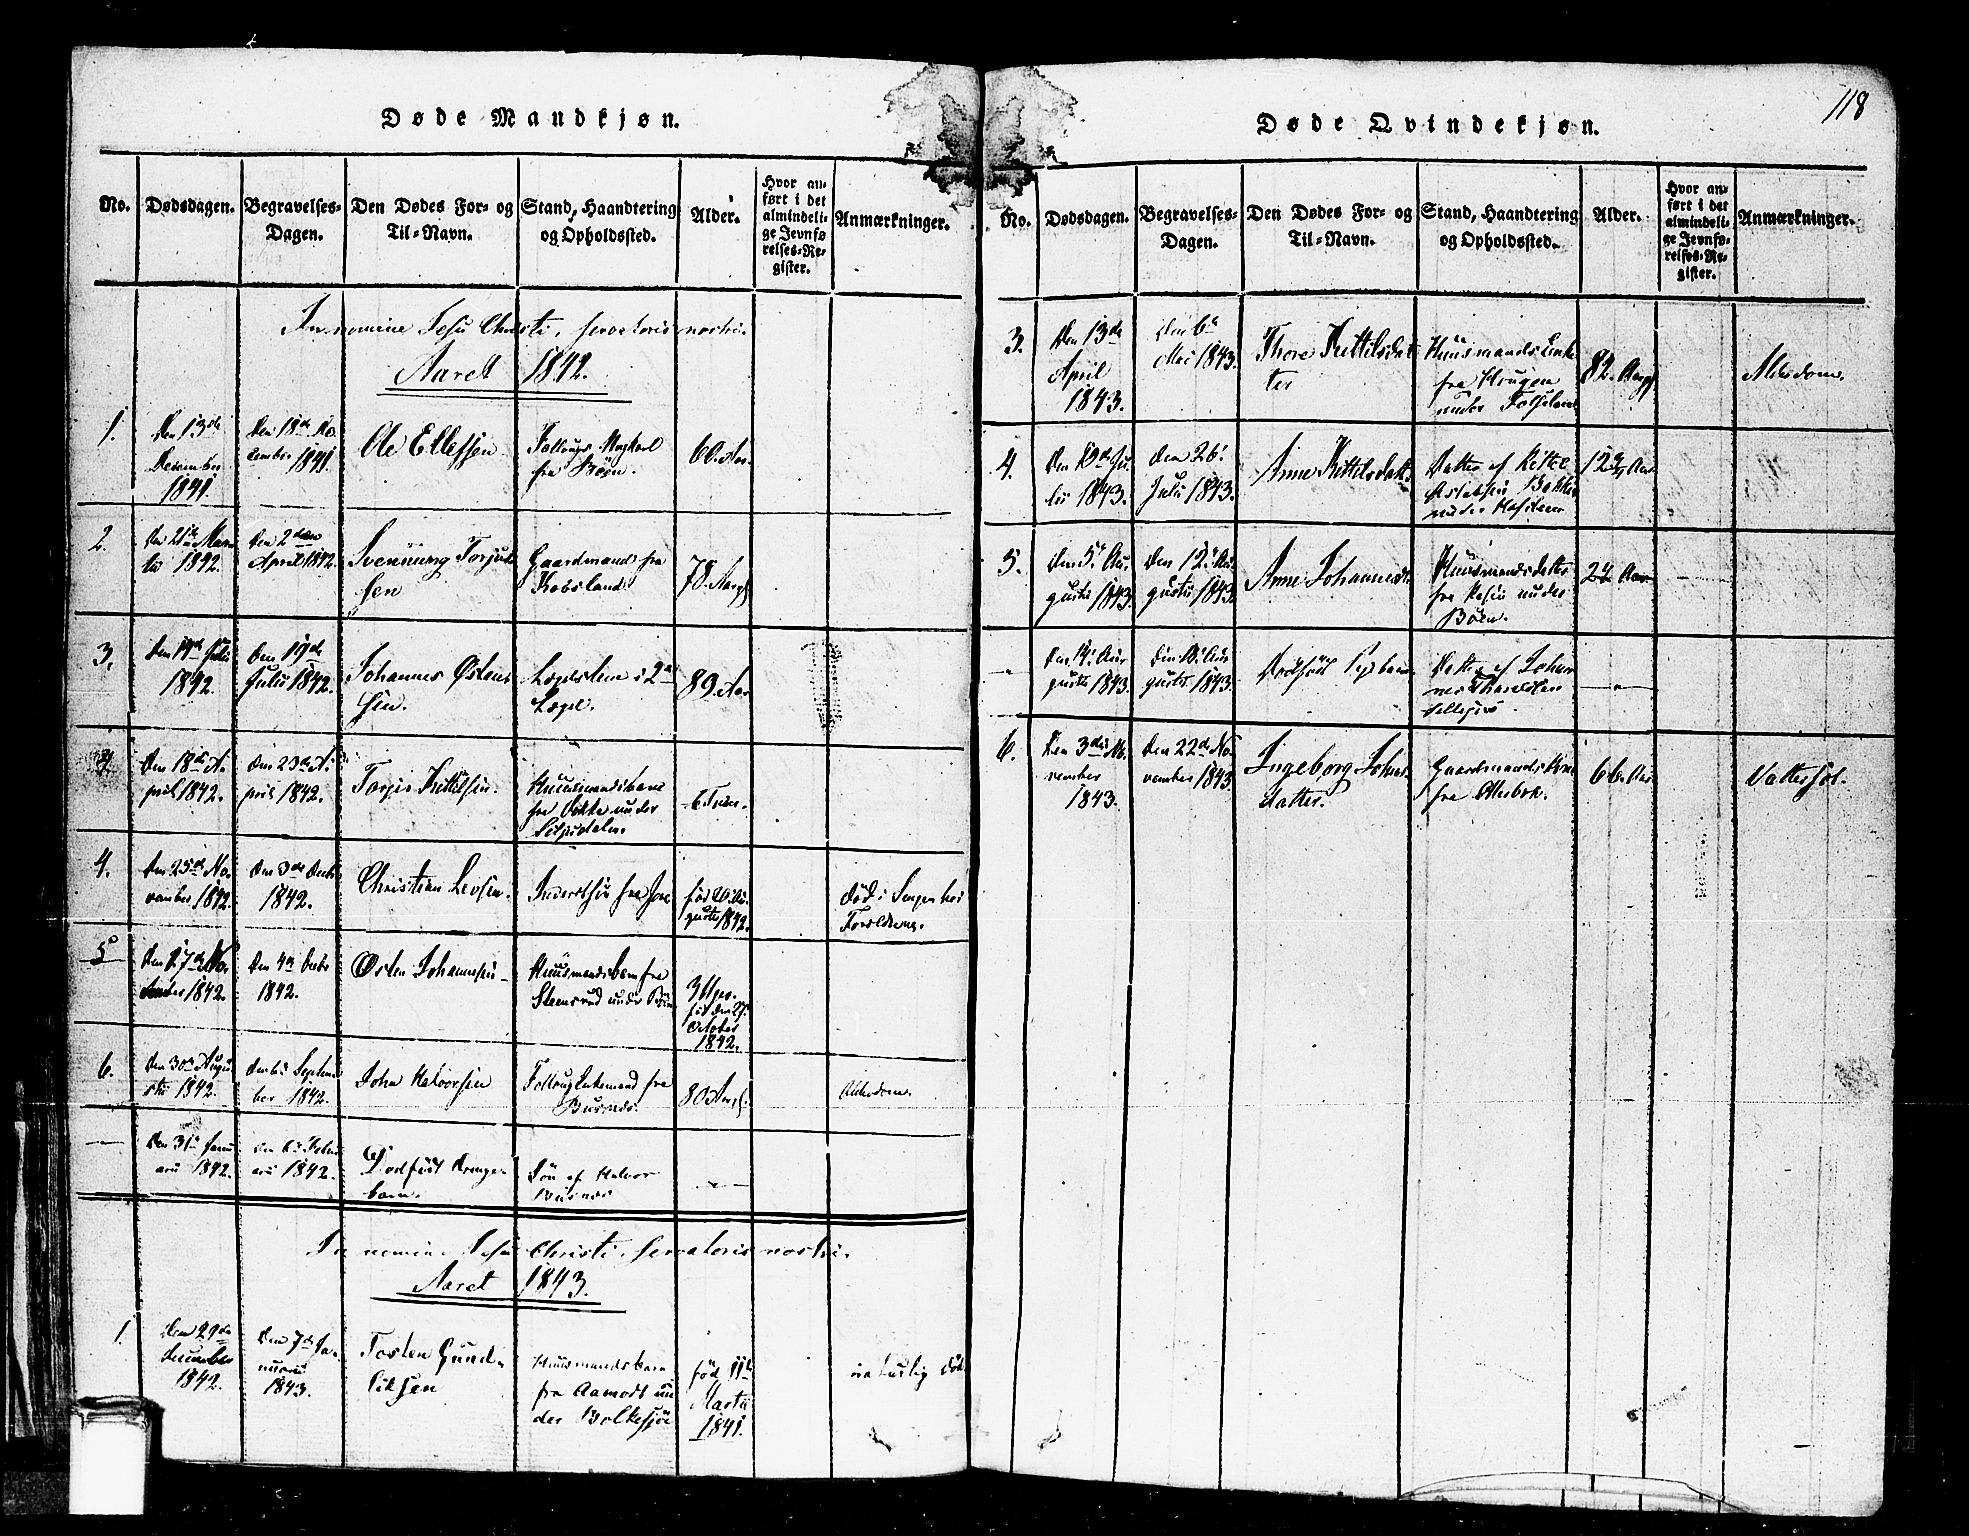 118
Døde Mandkjøn.
No.
Dødsdagen.
Begravelses-
Dagen.
Den Dødes For- og
Til-Navn.
Stand, Haandtering
og Opholdssted.
Alder.
Hvor an-
ført i det
almindeli-
ge Jevnfø
relses-Re-
gister.
Anmærkninger.
In nomine Jesu Christi, servatoris nostri.
Aaret 1842.
1.
Den 13de
December
1841.
Den 18de
cember 1841.
Ole Ellefsen
fra Böen.
60 Aar.
2.
Den 21de Mar-
tii 1842.
Den 2den
April 1842.
Svennung Torju
sen
Gaardmand fra
Kobsland
78 Aar
3.
Den 14de Julii
1842.
Den 19de
Julii 1842.
Johannes Østen
sen.
Lægdslem i 2
Lægd.
89 Aar
4.
Den 18de A-
pril 1842.
Den 23de A-
pril 1842.
Torjus Kittilsen.
Huusmandsbarn
fra Bakke under
6
4.
Den 25de No-
vember 1842.
Den 3de Decbr
1842.
Christian Levsen.
Inderstsön fra
föd Au-
gusti 1842.
död i Sengen hos
Forældrene.
5
Den 27de No-
vember 1842.
Den 4de Decbr
1842.
Østen Johannesen
Huusmandsbarn fra
Steensrud under Böen
3 Uger.
föd den 27
October
1842.
6.
Den 30te Augu
sti 1842.
Den 6te Septem
ber 1842.
John Halvorsen
Follougs Enkemand fra
Busnes.
80 Aar
Alderdom.
Den 31te Janu
arii 1842.
Den 6te Febru
arii 1842.
Dödfödt Drenge-
barn.
Sön af Halvor
Busnes
In nomine Jesu Christi, servatoris nostri.
Aaret 1843.
1.
Den 29de
December
1842.
Den 7de Ja-
nuarii
1843.
Tosten Gund-
leiksen
Huusmandsbarn
fra Aamodt un
der Bolkesjöe
föd 11te
Martii
1841.
naturlig Död
Døde Qvindekjøn.
No.
Dødsdagen.
Begravelses-
Dagen.
Den Dødes For- og
Til-Navn.
Stand, Haandtering
og Opholdssted.
Alder.
Hvor an-
ført i det
almindeli-
ge Jevnfø-
relses-Re-
gister.
Anmærkninger.
3.
Den 13de
April
1843.
Den 6te
Mai 1843.
Thore Kittilsdat
ter
Huusmands Enke
fra Haugen
under
82 Aar
Alderdom.
4.
Den 19de Ju
lii 1843.
Den 26
Julii 1843.
Anne Kittilsdatt.
Datter af Kittel
Aslaksen Bakken
under
12 Aar
5.
Den 5te Au-
gusti 1843.
Den 12te Au-
gusti 1843.
Anne Johannesd.
Huusmandsdatter
fra under
Böen.
Aar
Den 14 Au-
gusti 1843.
Den 18 Au-
gusti 1843.
Dödfödt Pigebarn
Datter af Johan
nes
6.
Den 3die No-
vember
1843.
Den 22de No-
vember 1843.
Ingeborg Johns
datter.
Gaardmands Kone
fra Otterbek.
66 Aar
Vattersot.